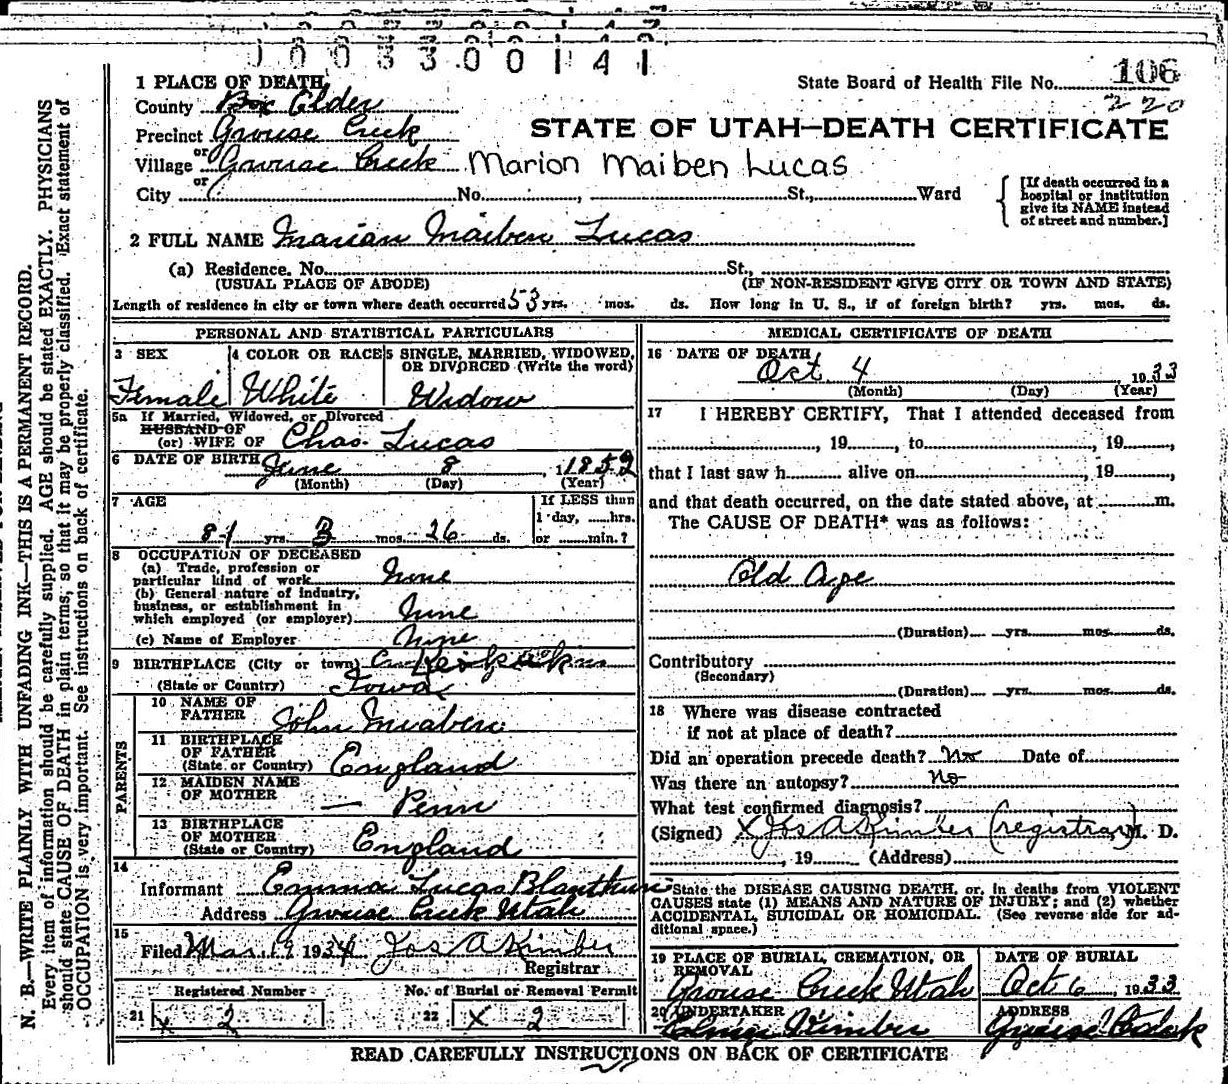 1003300141
1 PLACE OF DEATH
State Board of Health File No. 106
220
County Box Elder
Precinct Grouse Creek
STATE OF UTAH—DEATH CERTIFICATE
or
Village Grouse Creek Marion Maiben Lucas
or
City No. , St., Ward
[If death occurred in a hospital or institution give its NAME instead of street and number.]
2 FULL NAME Marian Maiben Lucas
(a) Residence. No. St.,
(USUAL PLACE OF ABODE) (IF NON-RESIDENT GIVE CITY OR TOWN AND STATE)
Length of residence in city or town where death occurred 53 yrs. mos. ds. How long in U. S., if of foreign birth? yrs. mos. ds.
PERSONAL AND STATISTICAL PARTICULARS
3 SEX
Female
4 COLOR OR RACE
White
5 SINGLE, MARRIED, WIDOWED,
OR DIVORCED (Write the word)
Widow
5a If Married, Widowed, or Divorced
HUSBAND OF
(or) WIFE OF Chas. Lucas
6 DATE OF BIRTH June 8, 1852
(Month) (Day) (Year)
7 AGE
81 yrs. 3 mos. 26 ds.
If LESS than
1 day, hrs.
or min.?
8 OCCUPATION OF DECEASED
(a) Trade, profession or
particular kind of work None
(b) General nature of industry,
business, or establishment in
which employed (or employer) None
(c) Name of Employer None
9 BIRTHPLACE (City or town)
(State or Country) Iowa
PARENTS
10 NAME OF
FATHER John Maiben
11 BIRTHPLACE
OF FATHER
(State or Country) England
12 MAIDEN NAME
OF MOTHER — Penn
13 BIRTHPLACE
OF MOTHER
(State or Country) England
14
Informant Emma Lucas
Address Grouse Creek Utah
15
Filed Mar. 19 1934 Jos A Kimber
Registrar
Registered Number
21 x 2
No. of Burial or Removal Permit
22 x 2
MEDICAL CERTIFICATE OF DEATH
16 DATE OF DEATH
Oct 4 1933
(Month) (Day) (Year)
17 I HEREBY CERTIFY, That I attended deceased from
, 19 , to , 19 ,
that I last saw h alive on , 19 ,
and that death occurred, on the date stated above, at m.
The CAUSE OF DEATH* was as follows:
Old Age
(Duration) yrs. mos. ds.
Contributory
(Secondary)
(Duration) yrs. mos. ds.
18 Where was disease contracted
if not at place of death?
Did an operation precede death? No Date of
Was there an autopsy? no
What test confirmed diagnosis?
(Signed) x Jos A Kimber (registrar) M. D.
, 19 (Address)
*State the DISEASE CAUSING DEATH, or, in deaths from VIOLENT
CAUSES state (1) MEANS AND NATURE OF INJURY; and (2) whether
ACCIDENTAL, SUICIDAL OR HOMICIDAL. (See reverse side for ad-
ditional space.)
19 PLACE OF BURIAL, CREMATION, OR
REMOVAL
Grouse Creek Utah
DATE OF BURIAL
Oct 6, 1933
20 UNDERTAKER
Kimber
ADDRESS
Grouse Creek
READ CAREFULLY INSTRUCTIONS ON BACK OF CERTIFICATE
N. B.—WRITE PLAINLY WITH UNFADING INK—THIS IS A PERMANENT RECORD.
Every item of information should be carefully supplied. AGE should be stated EXACTLY. PHYSICIANS
should state CAUSE OF DEATH in plain terms, so that it may be properly classified. Exact statement of
OCCUPATION is very important. See instructions on back of certificate.